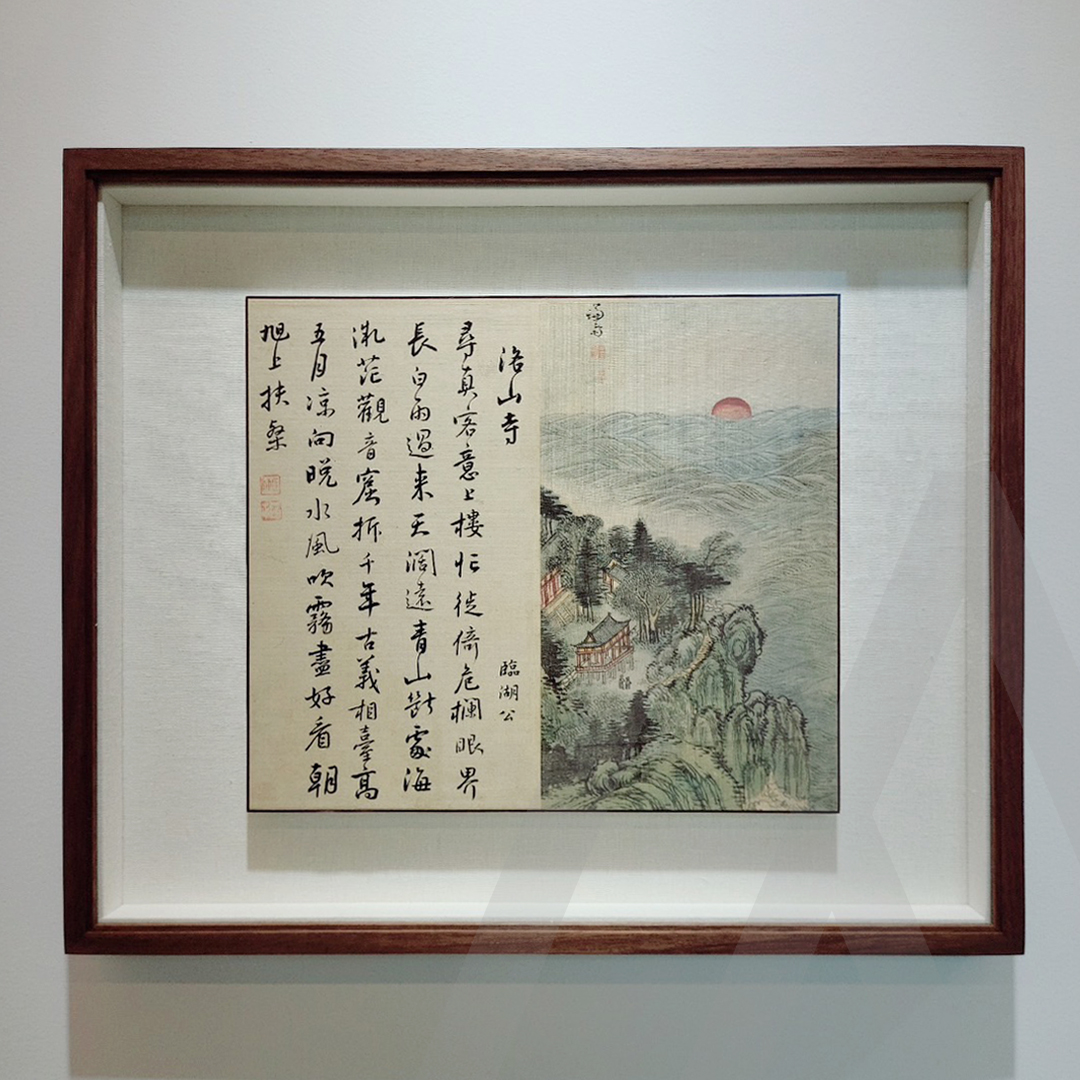 洛山寺 臨湖公
尋真客意上樓忙徙倚危欄眼界
長白雨過來天濶遠青山斷處海
微茫觀音窟拆千年古義相臺高
五月凉向晚水風吹霧盡好看朝
旭上扶桒